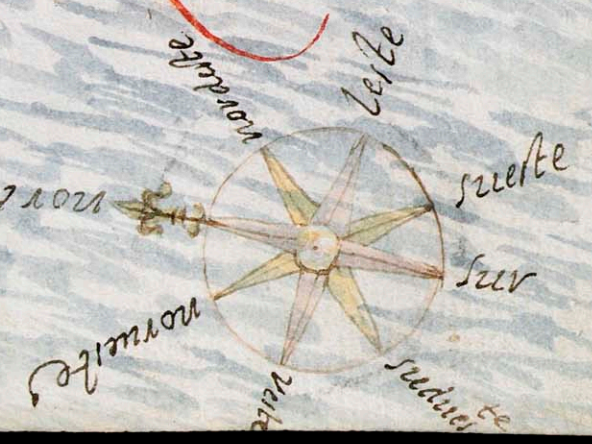 nordeste
leste
sueste
sur
sudueste
norueste